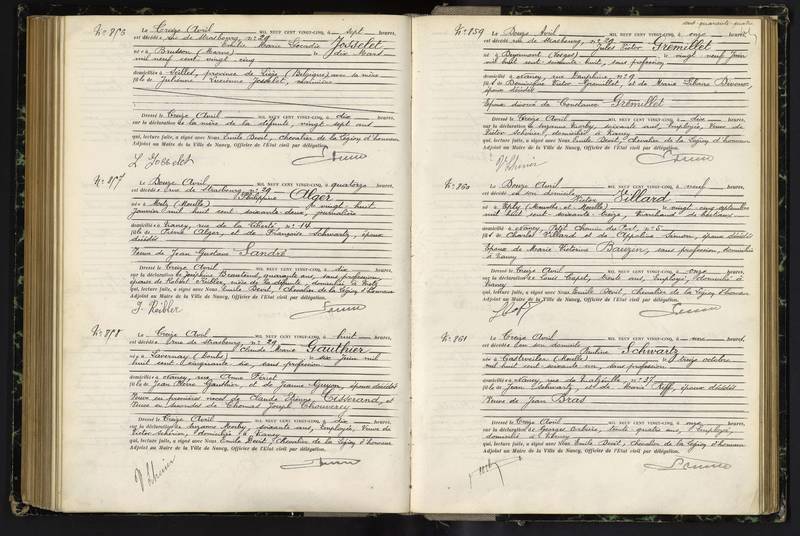 N° 856 Le Treize Avril MIL NEUF CENT VINGT-CINQ, à sept heures,
est décédée rue de Strasbourg, n° 29
Emilie Marie Léocadie Josselet
née à Brusson (Marne) le dix Mars
mil neuf cent vingt cinq
domiciliée à Seilles, province de Liège (Belgique) avec sa mère
fille de Julienne Lucienne Josselet, couturière
Dressé le Treize Avril MIL NEUF CENT VINGT-CINQ, à dix heures,
sur la déclaration de la mère de la défunte, vingt sept ans
qui, lecture faite, a signé avec Nous Emile Devit, Chevalier de la Légion d'honneur
Adjoint au Maire de la Ville de Nancy, Officier de l'Etat civil par délégation.
L Josselet
N° 857 Le Douze Avril MIL NEUF CENT VINGT-CINQ, à quatorze heures,
est décédée rue de Strasbourg, n° 29
Philippine Alger
née à Metz (Moselle) le vingt huit
Janvier mil huit cent soixante deux, journalière
domiciliée à Nancy, rue de la Liberté, n° 14
fille de Pierre Alger, et de Françoise Schwartz, époux
décédés
Veuve de Jean Gustave Sandré
Dressé le Treize Avril MIL NEUF CENT VINGT-CINQ, à dix heures,
sur la déclaration de Joséphine quarante ans, sans profession,
épouse de Robert de la défunte, domiciliée à Metz
qui, lecture faite, a signé avec Nous Emile Devit, Chevalier de la Légion d'honneur
Adjoint au Maire de la Ville de Nancy, Officier de l'Etat civil par délégation.
N° 858 Le Treize Avril MIL NEUF CENT VINGT-CINQ, à huit heures,
est décédée rue de Strasbourg, n° 29
Claude Marie Gauthier
née à Lavernay (Doubs) le six Juin mil
huit cent cinquante six, sans profession
domiciliée à Nancy, rue
fille de Jean Pierre Gauthier, et de Jeanne Guyon, époux décédés
Veuve en premières noces de Claude Etienne Tisserand, et
Veuve en secondes de Thomas Joseph Chouverey
Dressé le Treize Avril MIL NEUF CENT VINGT-CINQ, à dix heures,
sur la déclaration de Suzanne soixante ans, Employée, Veuve de
Victor domiciliée à Nancy
qui, lecture faite, a signé avec Nous Emile Devit, Chevalier de la Légion d'honneur
Adjoint au Maire de la Ville de Nancy, Officier de l'Etat civil par délégation.
cent quarante quatre
N° 859 Le Douze Avril MIL NEUF CENT VINGT-CINQ, à onze heures,
est décédé rue de Strasbourg, n° 29
Jules Victor Grémillet
né à (Vosges) le vingt neuf Juin
mil huit cent soixante huit, sans profession
domicilié à Nancy, rue Dauphine n° 9
fils de Dominique Victor Grémillet, et de Marie
époux décédés
Epoux divorcé de Constance Grémillet
Dressé le Treize Avril MIL NEUF CENT VINGT-CINQ, à dix heures,
sur la déclaration de Suzanne soixante ans, Employée, Veuve de
Victor domiciliée à Nancy
qui, lecture faite, a signé avec Nous Emile Devit, Chevalier de la Légion d'honneur
Adjoint au Maire de la Ville de Nancy, Officier de l'Etat civil par délégation.
N° 860 Le Douze Avril MIL NEUF CENT VINGT-CINQ, à neuf heures,
est décédé en son domicile
Victor Villard
né à Eply (Meurthe et Moselle) le vingt cinq septembre
mil huit cent soixante treize, Marchand de bestiaux
domicilié à Nancy, Petit Chemin du Port, n° 5
fils de Charles Villard et de Appoline Simon, époux décédés
Epoux de Marie Victorine Bauzin, sans profession, domiciliée
à Nancy
Dressé le Treize Avril MIL NEUF CENT VINGT-CINQ, à onze heures,
sur la déclaration de Louis Capel, trente ans, Employé, domicilié à
Nancy
qui, lecture faite, a signé avec Nous Emile Devit, Chevalier de la Légion d'honneur
Adjoint au Maire de la Ville de Nancy, Officier de l'Etat civil par délégation.
N° 861 Le Treize Avril MIL NEUF CENT VINGT-CINQ, à heures,
est décédée en son domicile
Pauline Schwartz
née à (Moselle) le treize octobre
mil huit cent soixante un, sans profession
domiciliée à Nancy, rue de Malzéville n° 37
fille de Jean Schwartz, et de Marie Kiff, époux décédés
Veuve de Jean Bras
Dressé le Treize Avril MIL NEUF CENT VINGT-CINQ, à onze heures,
sur la déclaration de Georges trente quatre ans, Employé,
domicilié à Nancy
qui, lecture faite, a signé avec Nous Emile Devit, Chevalier de la Légion d'honneur
Adjoint au Maire de la Ville de Nancy, Officier de l'Etat civil par délégation.